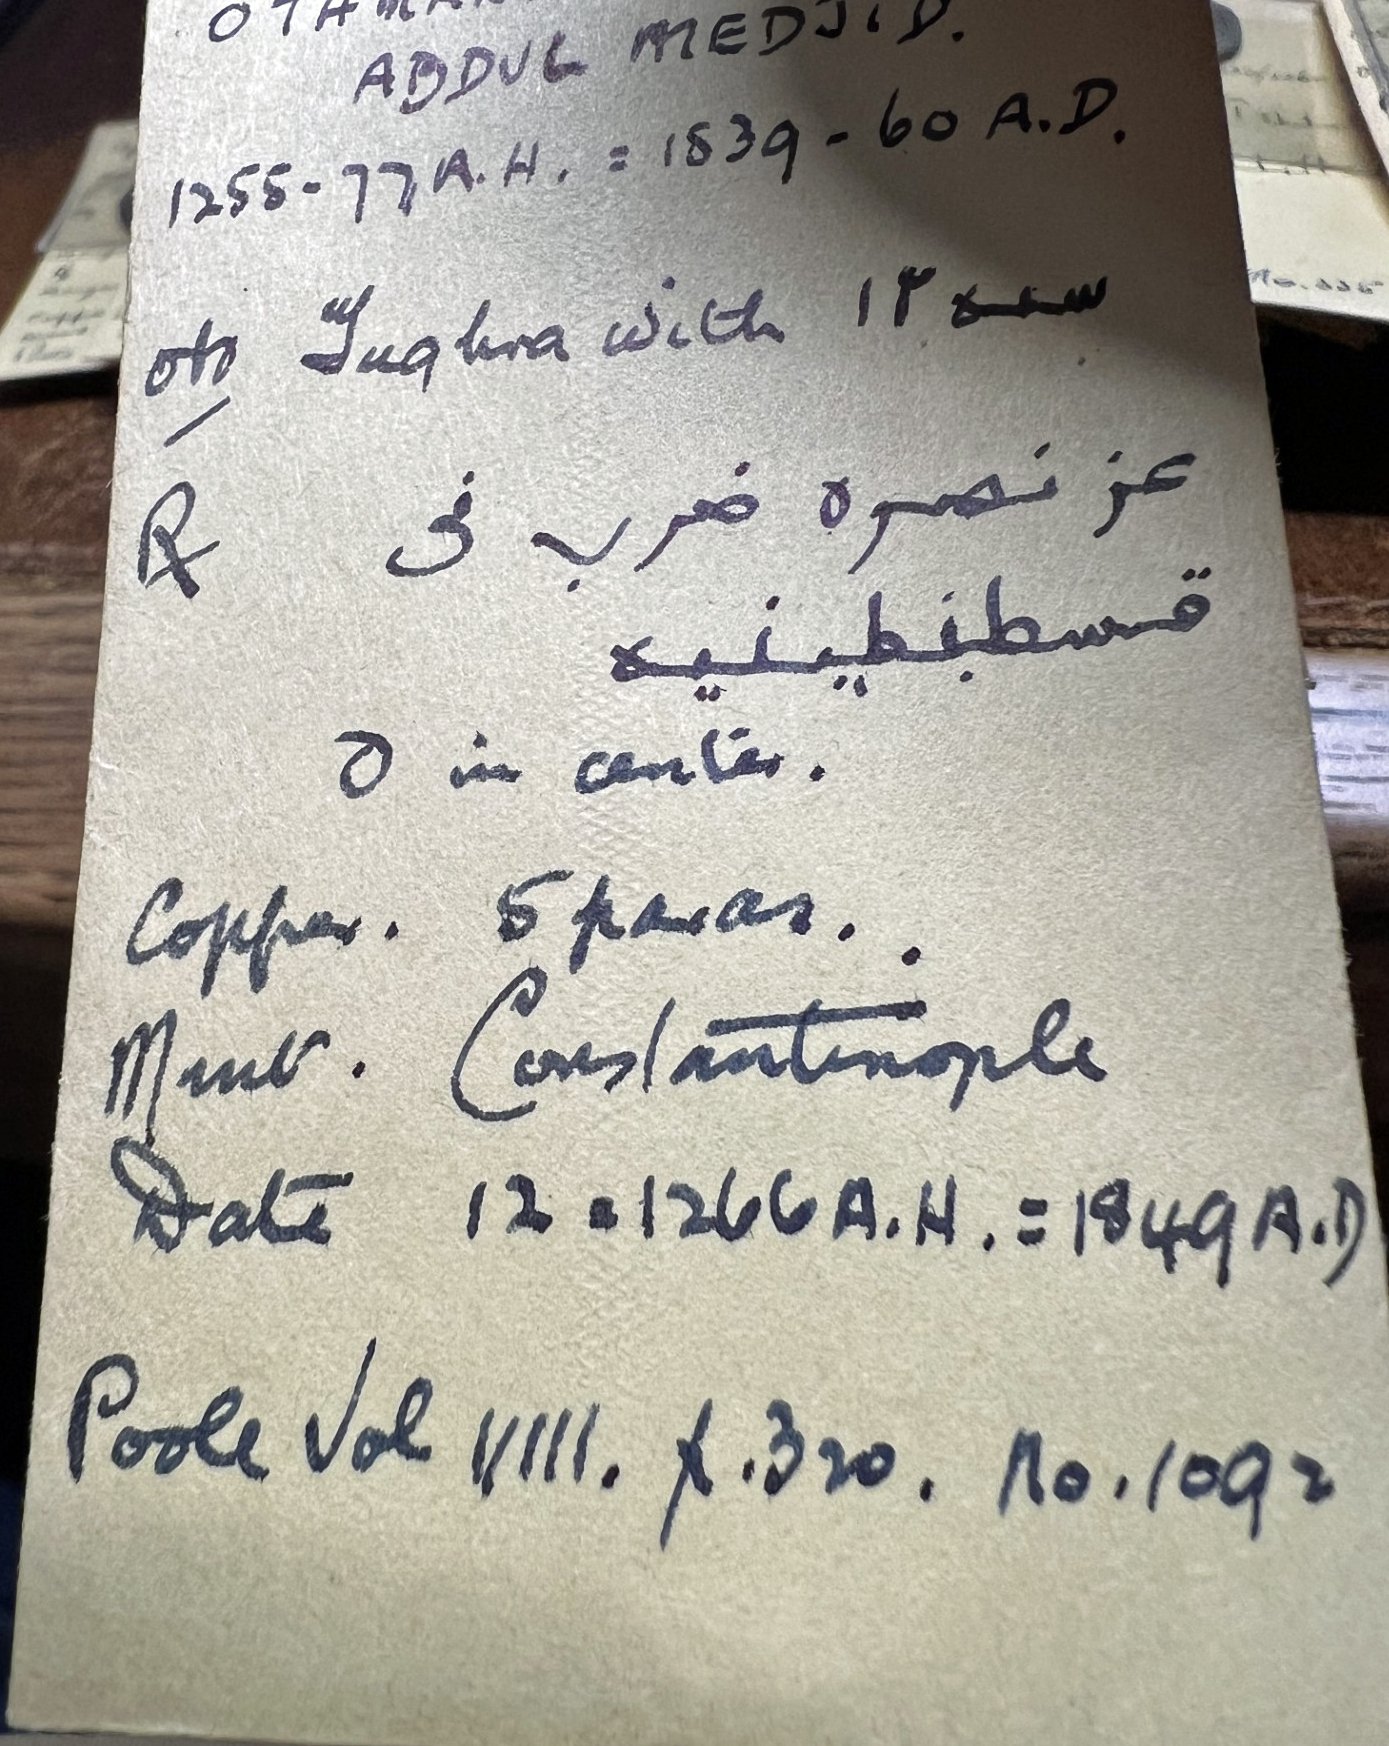 ABDUL MEDJID.
1255-77 A.H. = 1839-60 A.D.
ob Tughra with ١٢ سنه
R عز نصره ضرب فى
قسطنطينيه
٥ in center.
Copper. 5 paras.
Mint. Constantinople
Date 12 = 1266 A.H. = 1849 A.D
Poole Vol VIII. p.320. No.1092
No.225